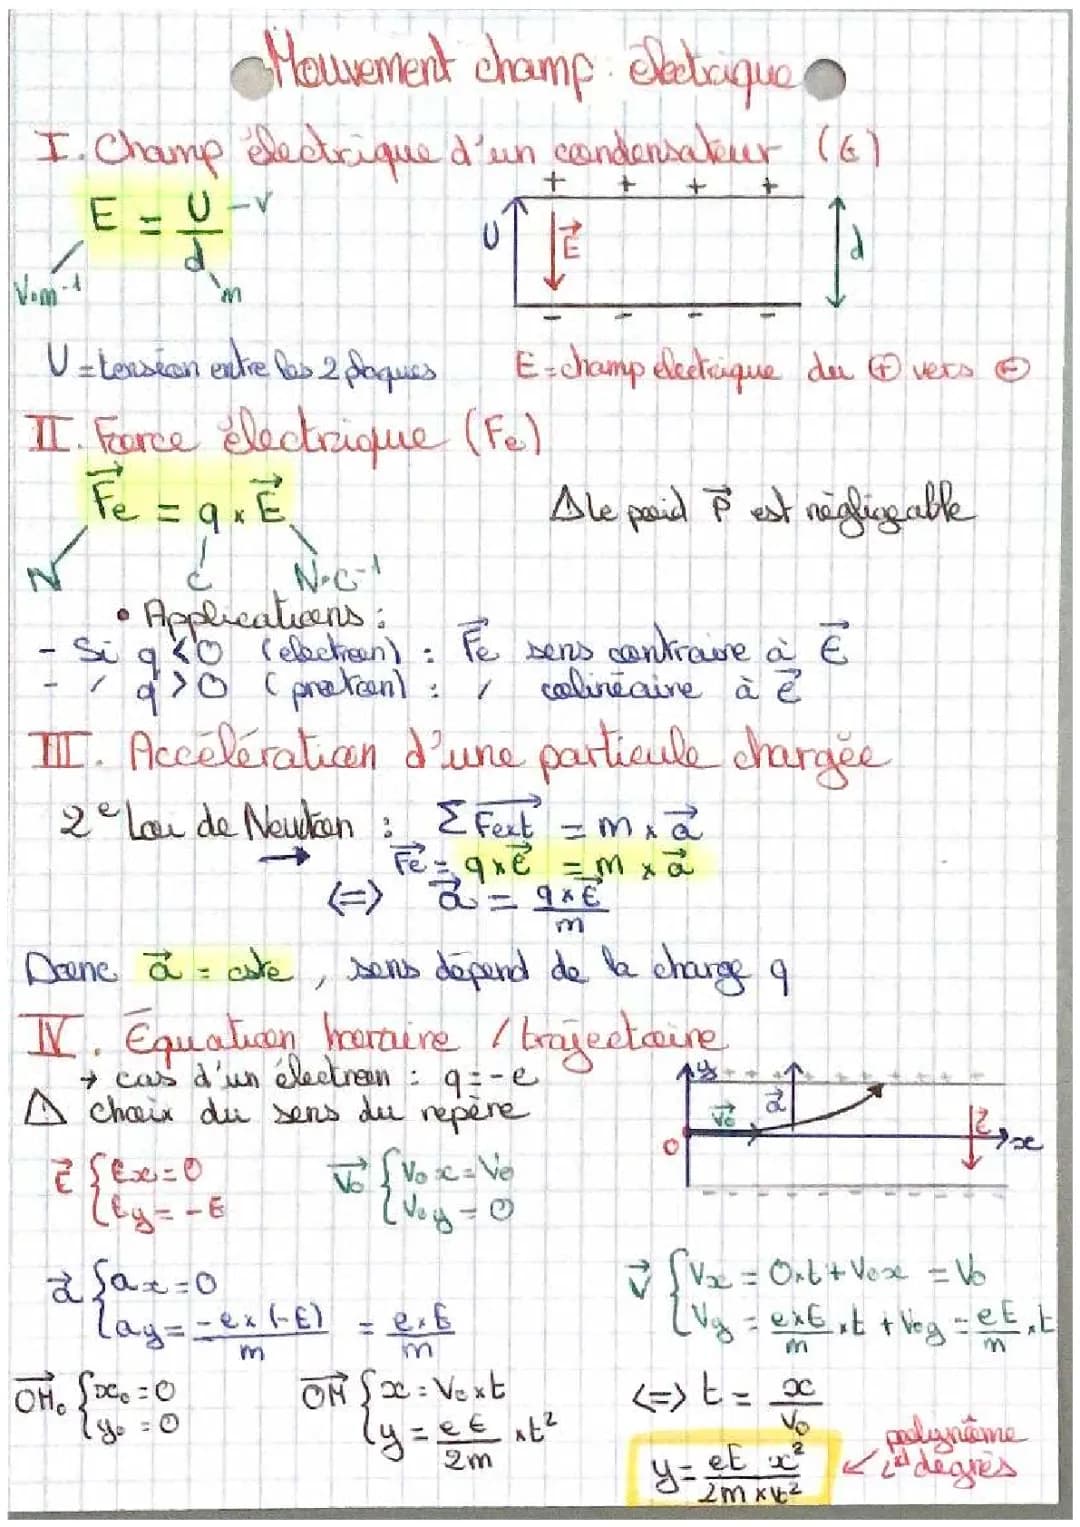 Mouvement champ électrique
I. Champ électrique d'un condensateur (E)
+ + + +
E = U/d
V
V.m⁻¹
m
U
E⃗
d
- - - -
U = tension entre les 2 plaques
E = champ électrique du ⊕ vers ⊖
II. Force électrique (Fe)
F⃗e = q × E⃗
N
C
N.C⁻¹
⚠ Le poid P⃗ est négligeable
• Applications :
- Si q < 0 (électron) : F⃗e sens contraire à E⃗
- / q > 0 (proton) : / colinéaire à E⃗
III. Accélération d'une particule chargée
2e Loi de Newton : Σ F⃗ext = m × a⃗
→ F⃗e = q × E⃗ = m × a⃗
<=> a⃗ = q × E⃗ / m
Donc a⃗ = cste, sens dépend de la charge q
IV. Équation horaire / trajectoire
→ cas d'un électron : q = -e
⚠ choix du sens du repère
y + + + + + + + +
V⃗o
a⃗
E⃗
O
x
- - - - - - - -
E⃗ { Ex = 0
Ey = -E
V⃗o { Vox = Vo
Voy = 0
a⃗ { ax = 0
ay = -e × (-E) / m = e × E / m
V⃗ { Vx = 0×t + Vox = Vo
Vy = e×E/m × t + Voy = eE/m × t
OM⃗o { xo = 0
yo = 0
OM⃗ { x = Vo × t
y = eE/2m × t²
<=> t = x/Vo
y = eE x² / 2m × v²
← polynôme 2nd degrés